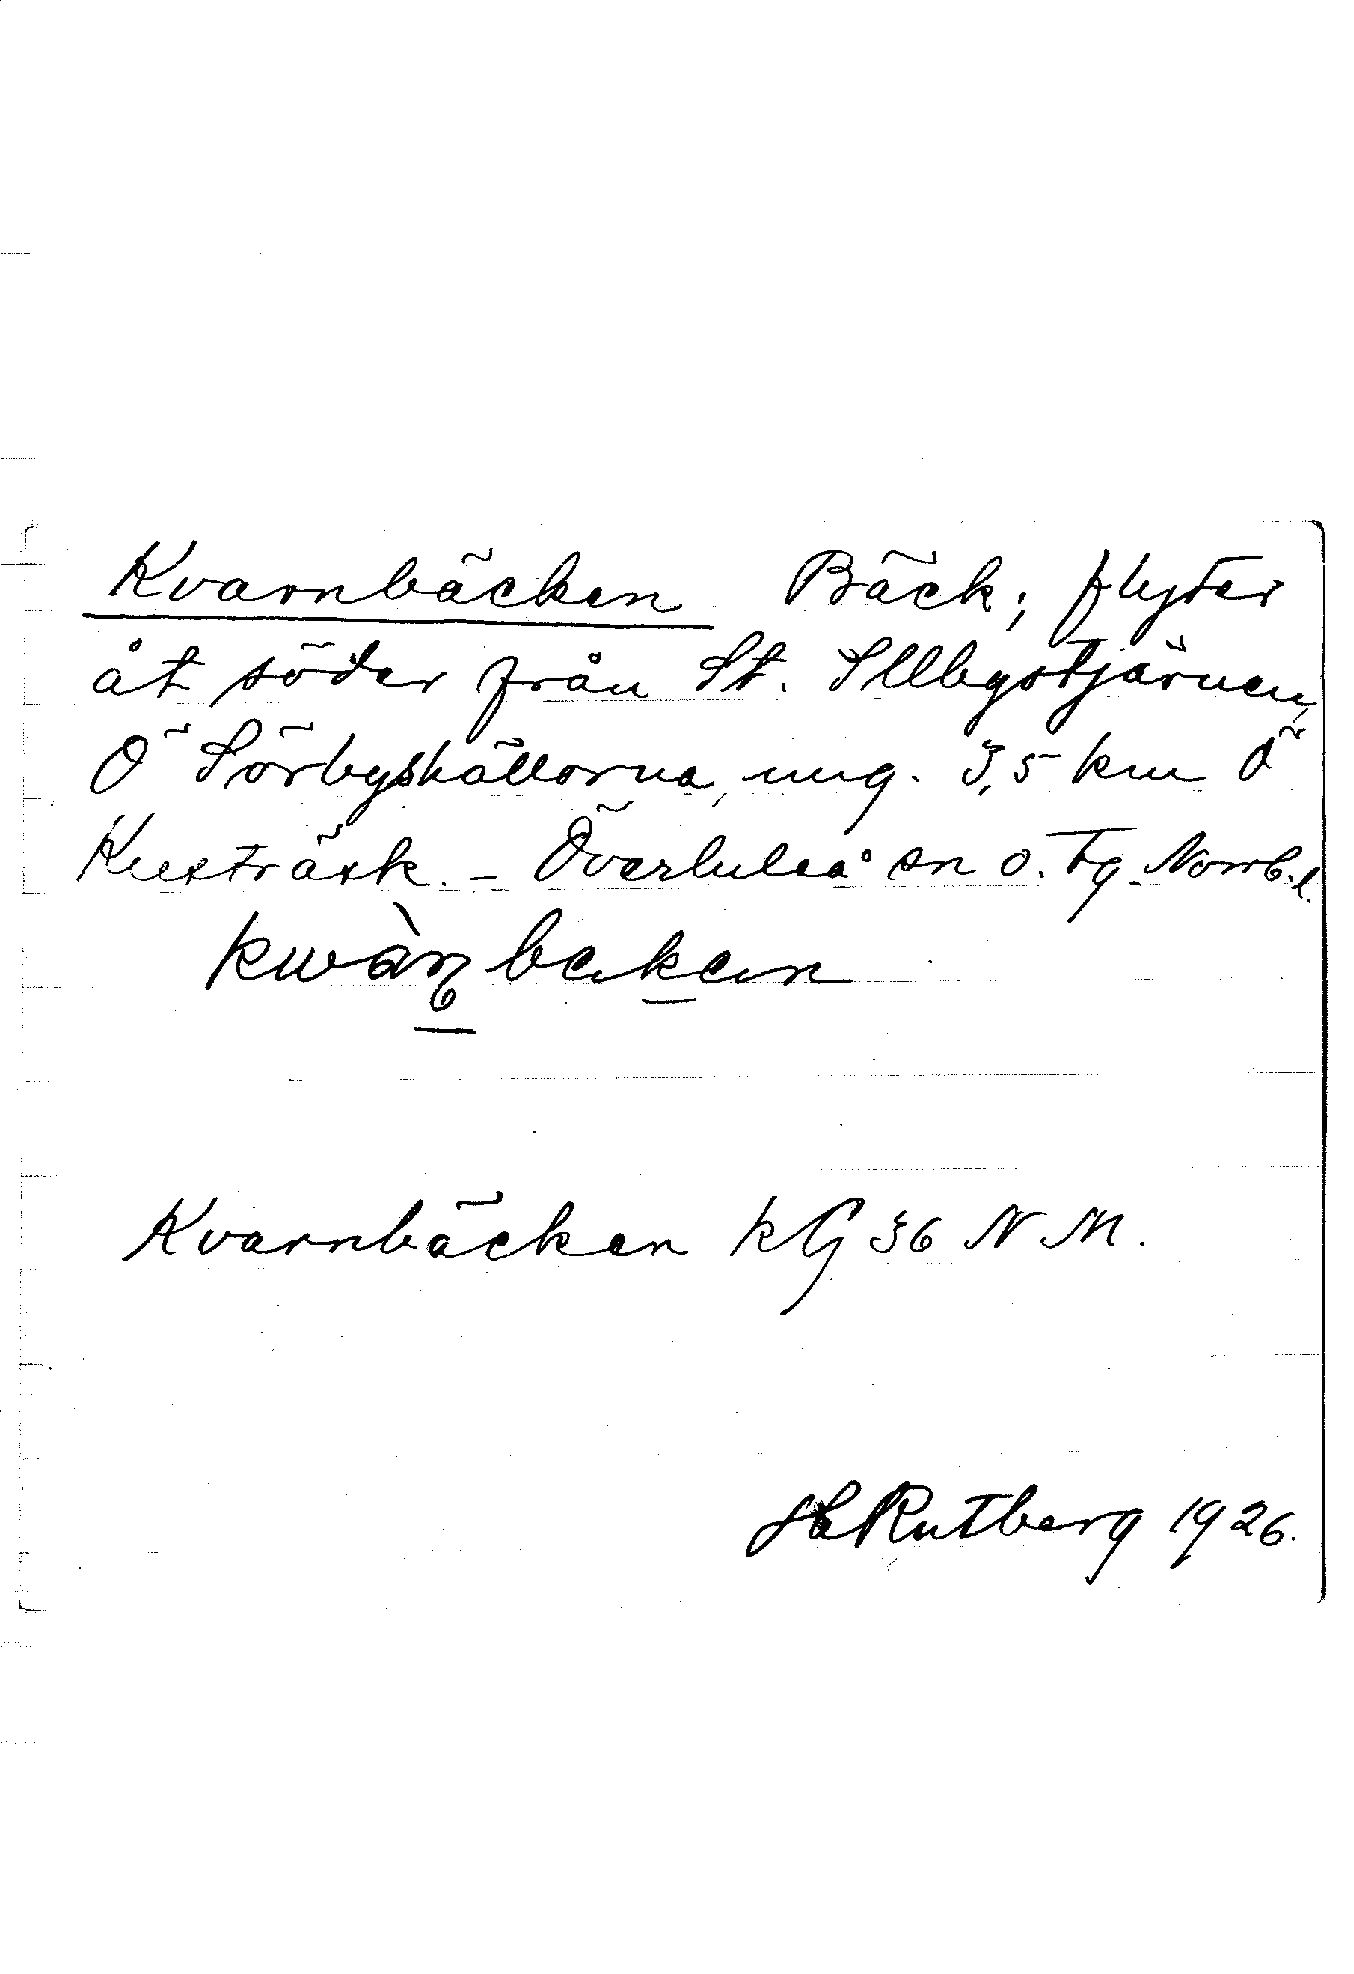 Kvarnbäcken Bäck; flyter
åt söder från St. Sllbystjärnen,
Ö Sörbyskällorna, ung. 3,5 km Ö
Kusträsk. - Överluleå sn o. Tg. Norrb. l.
kwàn̥beken
Kvarnbäcken kG 36 N M.
Rutberg 1926.